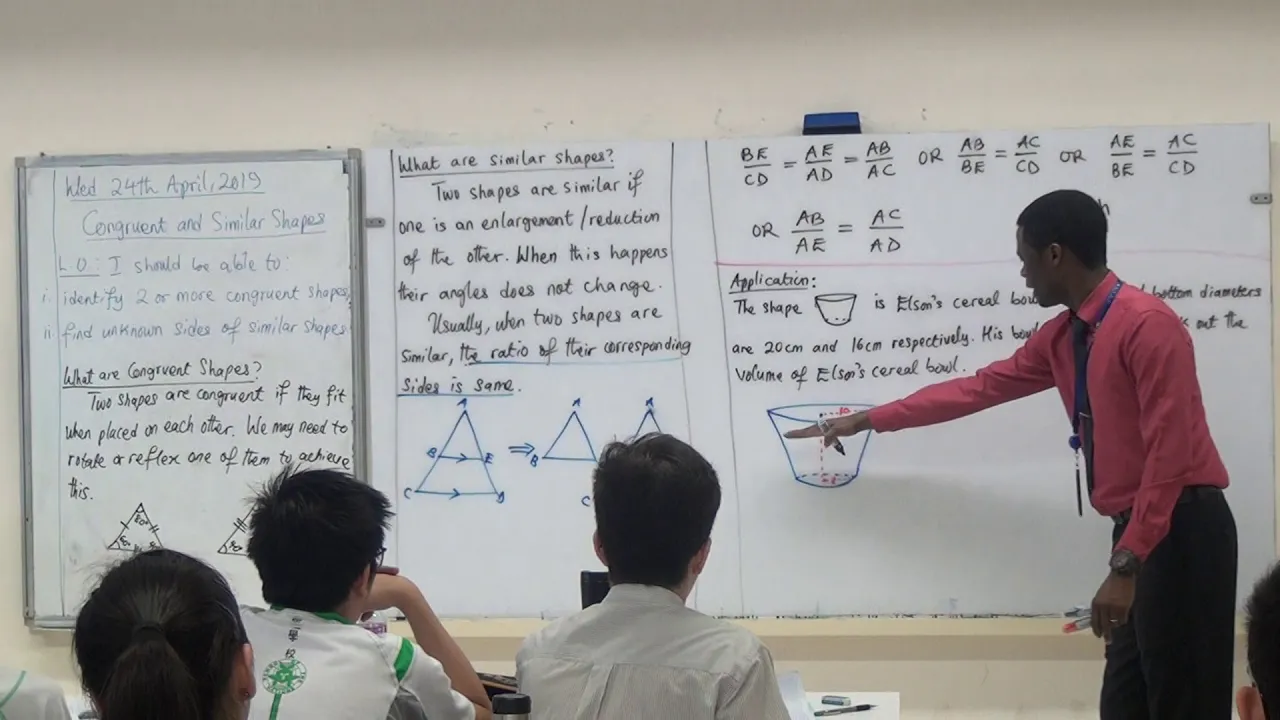 Wed 24th April, 2019
Congruent and Similar Shapes
L.O: I should be able to:
i. identify 2 or more congruent shapes,
ii. find unknown sides of similar shapes.
What are Congruent Shapes?
Two shapes are congruent if they fit
when placed on each other. We may need to
rotate or reflect one of them to achieve
this.
What are similar shapes?
Two shapes are similar if
one is an enlargement/reduction
of the other. When this happens
their angles does not change.
Usually, wen two shapes are
similar, the ratio of their corresponding
sides is same.
A
B E
C D
⇒
A
B
A
C
BE/CD = AE/AD = AB/AC OR AB/BE = AC/CD OR AE/BE = AC/CD
OR AB/AE = AC/AD
Application:
The shape is Elson's cereal bowl bottom diameters
are 20cm and 16cm respectively. His bowl out the
volume of Elson's cereal bowl.
10
8
學 校